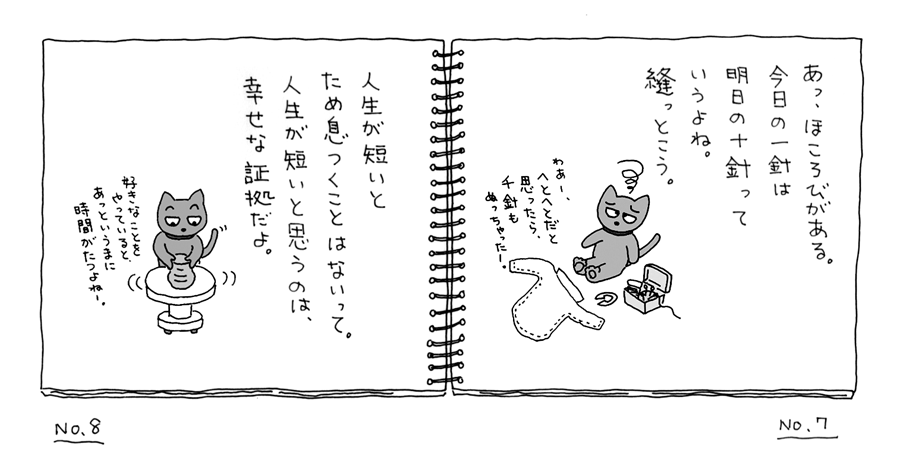 あっ、ほころびがある。
今日の一針は
明日の十針って
いうよね。
縫っとこう。
わぁー、
へとへとだと
思ったら、
千針も
ぬっちゃったー。
No.7
人生が短いと
ため息つくことはないって。
人生が短いと思うのは、
幸せな証拠だよ。
好きなことを
やっていると、
あっというまに
時間がたつよねー。
No.8